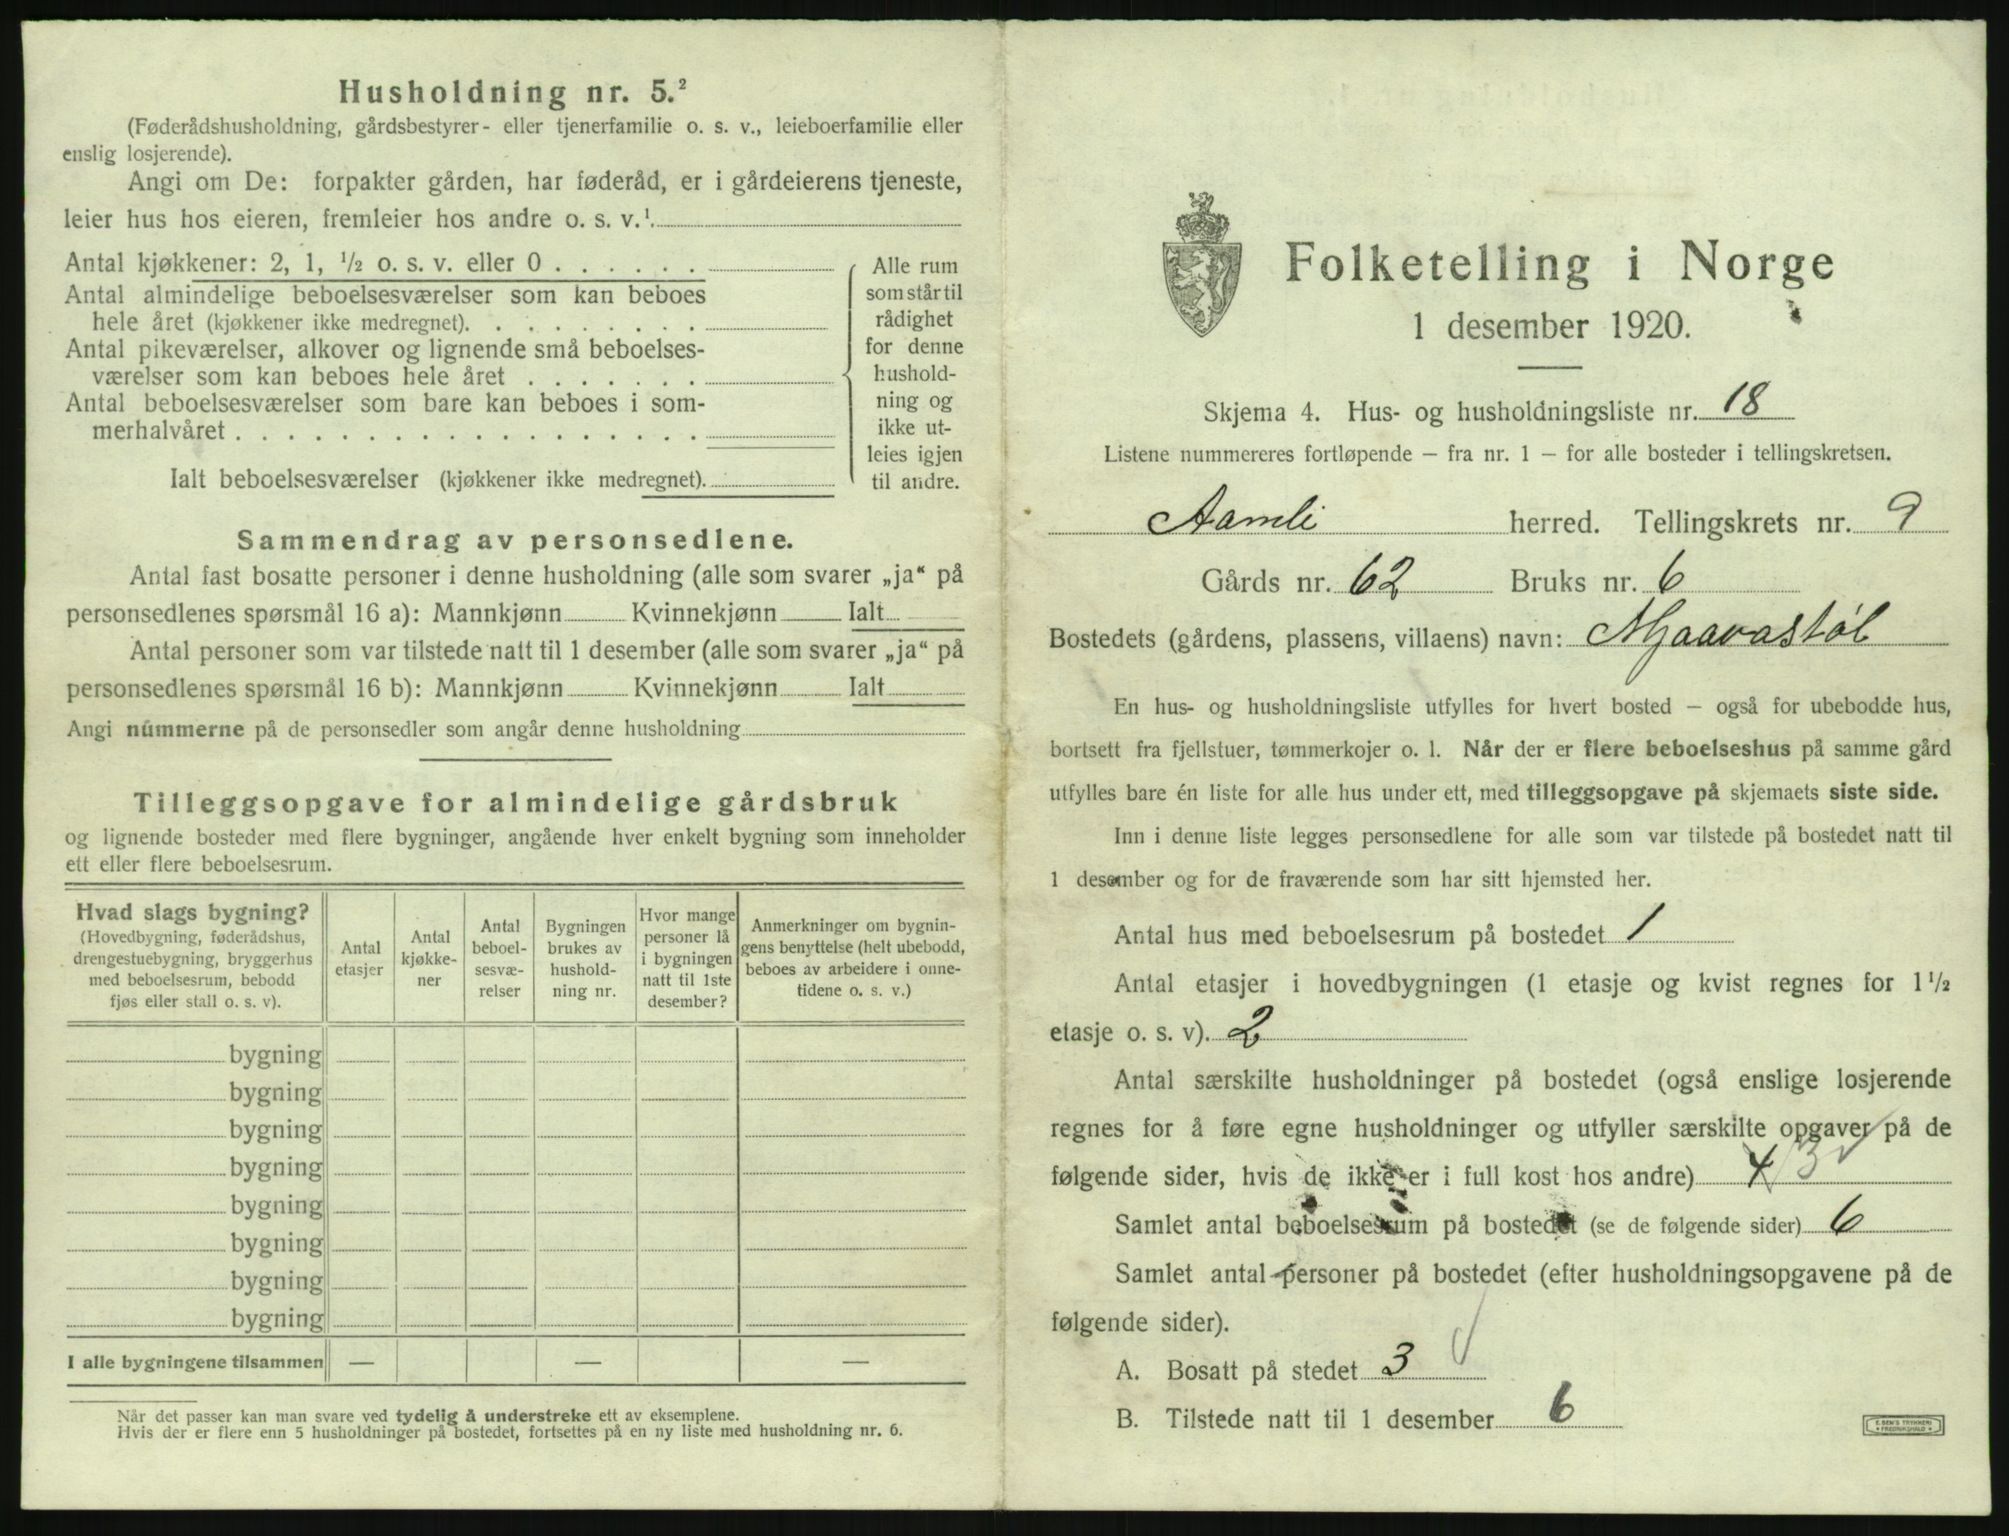 Husholdning nr. 5.²
(Føderådshusholdning, gårdsbestyrer- eller tjenerfamilie o. s. v., leieboerfamilie eller
enslig losjerende).
Angi om De: forpakter gården, har føderåd, er i gårdeierens tjeneste,
leier hus hos eieren, fremleier hos andre o. s. v.¹
Antal kjøkkener: 2, 1, ½ o. s. v. eller 0 . . . . . .
Antal almindelige beboelsesværelser som kan beboes
hele året (kjøkkener ikke medregnet). . . . . . . . .
Antal pikeværelser, alkover og lignende små beboelses-
værelser som kan beboes hele året . . . . . . .
Antal beboelsesværelser som bare kan beboes i som-
merhalvåret . . . . . . . . . . . . . . . . . .
Ialt beboelsesværelser (kjøkkener ikke medregnet).
Alle rum
som står til
rådighet
for denne
hushold-
ning og
ikke ut-
leies igjen
til andre.
Sammendrag av personsedlene.
Antal fast bosatte personer i denne husholdning (alle som svarer „ja“ på
personsedlenes spørsmål 16 a): Mannkjønn Kvinnekjønn Ialt
Antal personer som var tilstede natt til 1 desember (alle som svarer „ja“ på
personsedlenes spørsmål 16 b): Mannkjønn Kvinnekjønn Ialt
Angi nummerne på de personsedler som angår denne husholdning
Tilleggsopgave for almindelige gårdsbruk
og lignende bosteder med flere bygninger, angående hver enkelt bygning som inneholder
ett eller flere beboelsesrum.
Hvad slags bygning?
(Hovedbygning, føderådshus,
drengestuebygning, bryggerhus
med beboelsesrum, bebodd
fjøs eller stall o. s. v).
Antal
etasjer
Antal
kjøkke-
ner
Antal
beboel-
sesvæ-
relser
Bygningen
brukes av
hushold-
ning nr.
Hvor mange
personer lå
i bygningen
natt til 1ste
desember?
Anmerkninger om bygnin-
gens benyttelse (helt ubebodd,
beboes av arbeidere i onne-
tidene o. s. v.)
bygning
bygning
bygning
bygning
bygning
bygning
bygning
bygning
I alle bygningene tilsammen — — —
Når det passer kan man svare ved tydelig å understreke ett av eksemplene.
Hvis der er flere enn 5 husholdninger på bostedet, fortsettes på en ny liste med husholdning nr. 6.
Folketelling i Norge
1 desember 1920.
Skjema 4. Hus- og husholdningsliste nr. 18
Listene nummereres fortløpende – fra nr. 1 – for alle bosteder i tellingskretsen.
Aamli herred. Tellingskrets nr. 9
Gårds nr. 62 Bruks nr. 6
Bostedets (gårdens, plassens, villaens) navn: Mjaavastøl
En hus- og husholdningsliste utfylles for hvert bosted – også for ubebodde hus,
bortsett fra fjellstuer, tømmerkojer o. l. Når der er flere beboelseshus på samme gård
utfylles bare én liste for alle hus under ett, med tilleggsopgave på skjemaets siste side.
Inn i denne liste legges personsedlene for alle som var tilstede på bostedet natt til
1 desember og for de fraværende som har sitt hjemsted her.
Antal hus med beboelsesrum på bostedet 1
Antal etasjer i hovedbygningen (1 etasje og kvist regnes for 1½
etasje o. s. v). 2
Antal særskilte husholdninger på bostedet (også enslige losjerende
regnes for å føre egne husholdninger og utfyller særskilte opgaver på de
følgende sider, hvis de ikke er i full kost hos andre) 4 3
Samlet antal beboelsesrum på bostedet (se de følgende sider) 6
Samlet antal personer på bostedet (efter husholdningsopgavene på de
følgende sider).
A. Bosatt på stedet 3
B. Tilstede natt til 1 desember 6